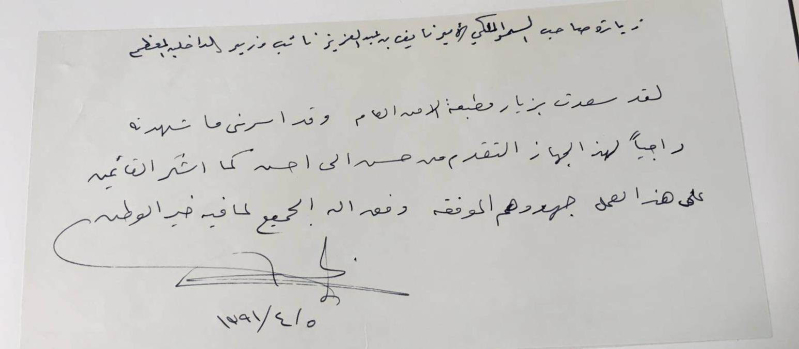 زيارة صاحب السمو الملكي الأمير نايف بن عبد العزيز نائب وزير الداخلية المعظم
لقد سعدت بزيارة مطبعة الامن العام وقد اسرني ما شهدته
راجياً لهذا الجهاز التقدم من حسن الى احسن كما اشكر القائمين
على هذا العمل جهودهم الموفقه وفق الله الجميع لما فيه خير الوطن
١٣٩١/٤/٥